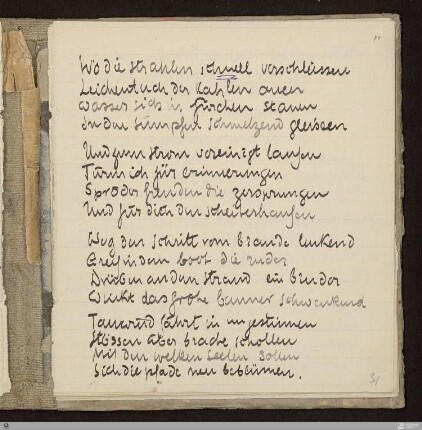 Wo die strahlen schnell verschleissen
Leichentuch der kahlen auen
Wasser sich in furchen stauen
In den sümpfen schmelzend gleissen
Und zum strom vereinigt laufen
Türm ich für erinnerungen
Spröder freuden die zersprungen
Und für dich den scheiterhaufen
Weg den schritt vom brande lenkend
Greif in dem boot die ruder
Drüben an dem strand ein bruder
Winkt das frohe banner schwenkend
Tauwind fährt in ungestümen
Stössen über brache schollen
Mit den welken seelen sollen
Sich die pfade neu beblümen.
31